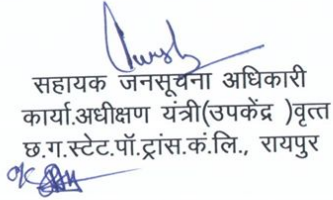 सहायक जनसूचना अधिकारी
कार्या.अधीक्षण यंत्री(उपकेंद्र )वृत्त
छ.ग.स्टेट.पॉ.ट्रांस.कं.लि., रायपुर